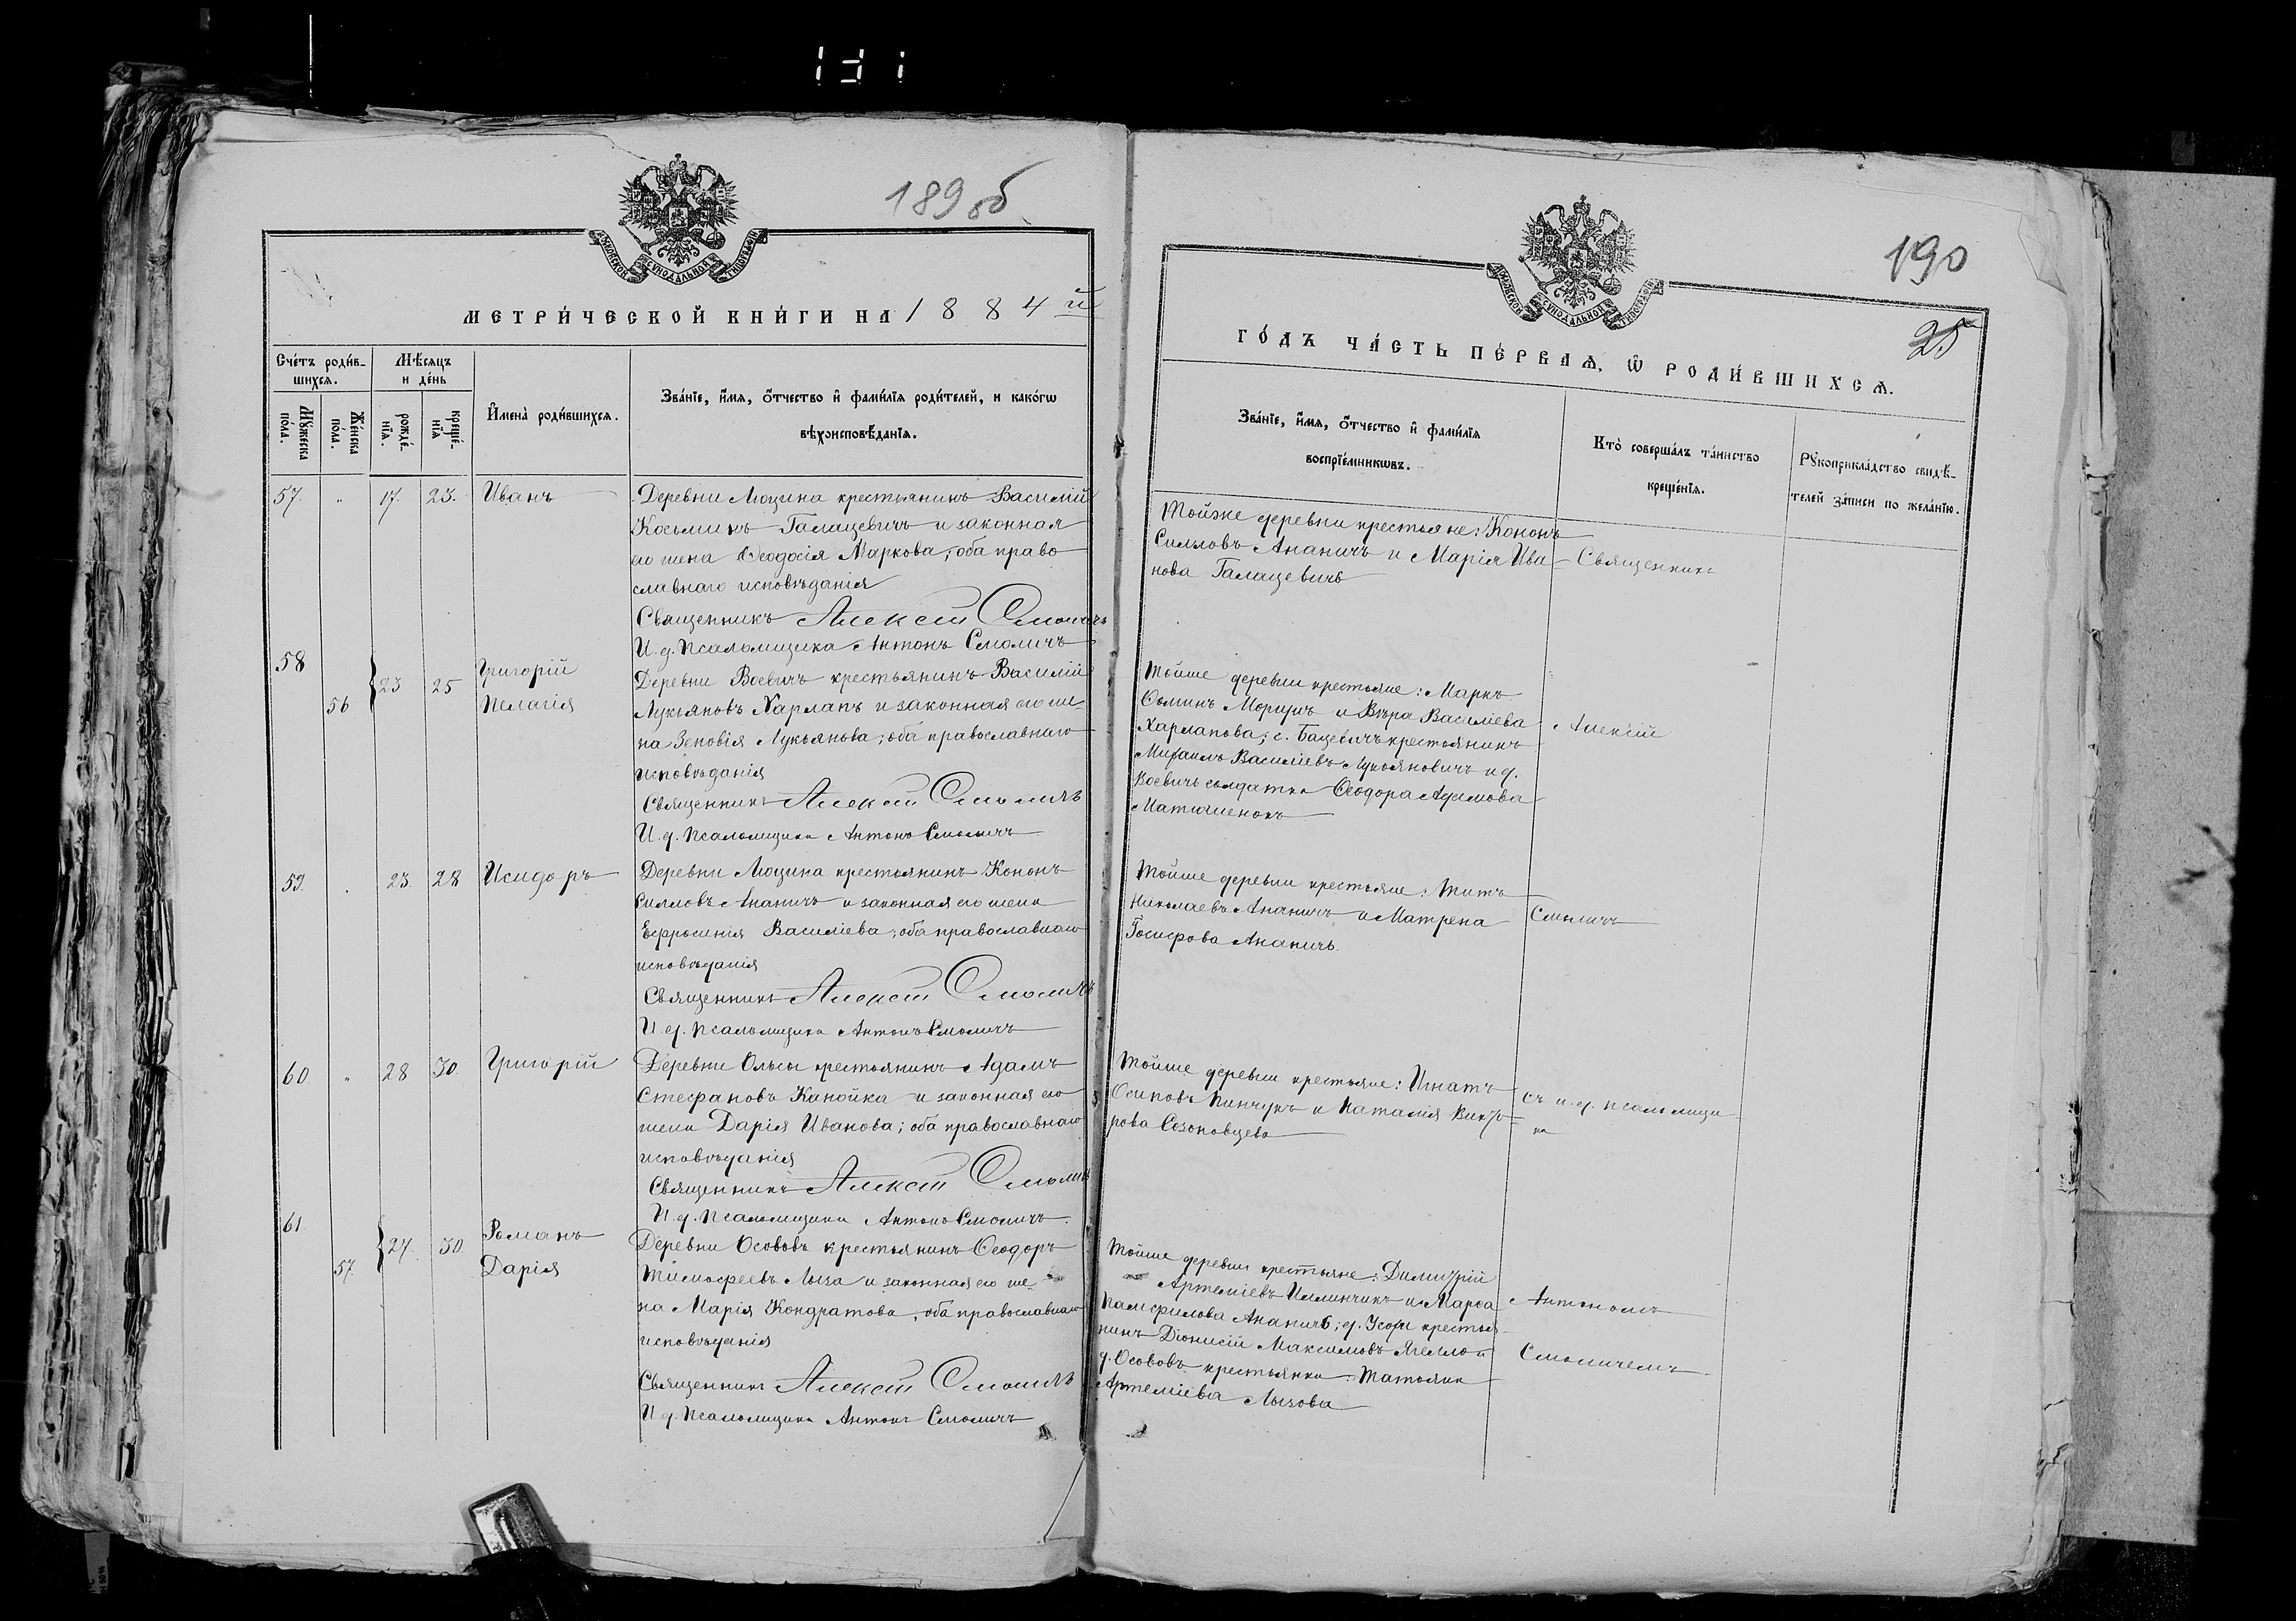 189 об
МЕТРИ́ЧЕСКОЙ КНИ́ГИ НА 1884 й
Сче́тъ роди́в-
шихся.
Мѣ́сяцъ
и де́нь
Му́жеска
по́ла.
Же́нска
по́ла.
рожде́-
нїя.
креще́-
нїя
И҆мена̀ роди́вшихся.
Зва́нїе, и҆́мя, ѻ҆́тчество и҆ фами́лїя роди́телей, и како́гѡ
вѣ҆роисповѣ́данїя.
57. " 17. 23. Иванъ
Деревни Люзина крестьянинъ Василій
Косьминъ Галацевичъ и законная
его жена Ѳеодосія Маркова, оба право-
славнаго исповѣданія
Священникъ Алексій Смоличъ
И. д. псаломщика Антонъ Смоличъ
58 56 23 25 Григорій
Пелагія
Деревни Воевичъ крестьянинъ Василій
Лукьяновъ Харлапъ и законная его же-
на Зеновія Лукьянова; оба православнаго
исповѣданія
Священникъ Алексій Смоличъ
И. д. псаломщика Антонъ Смоличъ
59. " 23. 28 Исидоръ
Деревни Люзина крестьянинъ Кононъ
Силловъ Ананичъ и законная его жена
Ефросинія Василіева; оба православнаго
исповѣданія
Священникъ Алексій Смоличъ
И. д. псаломщика Антонъ Смоличъ
60 " 28 30 Григорій
Деревни Ольсы крестьянинъ Адамъ
Стефановъ Канойка и законная его
жена Дарія Иванова; оба православнаго
исповѣданія
Священникъ Алексій Смоличъ
И. д. псаломщика Антонъ Смоличъ
61 57. 27. 30. Романъ
Дарія
Деревни Осововъ крестьянинъ Ѳеодоръ
Тимофеевъ Лыза и законная его же-
на Марія Кондратова, оба православнаго
исповѣданія
Священникъ Алексій Смоличъ
И. д. псаломщика Антонъ Смоличъ
190
25
ГО́ДЪ ЧА́СТЬ ПЕ́РВАЯ, Ѿ РОДИ́ВШИХСЯ.
Зва́нїе, и҆́мя, ѻ҆́тчество и҆ фами́лїя
воспрїе́мникѡвъ.
Кто̀ соверша́лъ та́инство
креще́нїя.
Рукоприкла́дство свидѣ́-
телей за́писи по жела́нїю.
Тойже деревни крестьяне: Кононъ
Силловъ Ананичъ и Марія Ива-
нова Галацевичъ
Священникъ
Тойже деревни крестьяне: Маркъ
Ѳоминъ и Вѣра Василіева
Харлапова; с. Бацевичъ крестьянинъ
Михаилъ Василіевъ Лукьяновичъ и д.
Воевичъ солдатка Ѳеодора Адамова
Матюшенокъ
Алексій
Тойже деревни крестьяне: Титъ
Николаевъ Ананичъ и Матрена
Іосифова Ананичъ.
Смоличъ
Тойже деревни крестьяне: Игнатъ
Осиповъ Пинчукъ и Наталія Викто-
рова Созоновцева
съ и. д. псаломщи-
ка
Тойже деревни крестьяне: Димитрій
Артеміевъ и Марѳа
Памфилова Ананичъ; д. Усохи крестья-
нинъ Діонисій Максимовъ Ягелло и
д. Осововъ крестьянка Татьяна
Артеміева Лызова
Антономъ
Смоличемъ